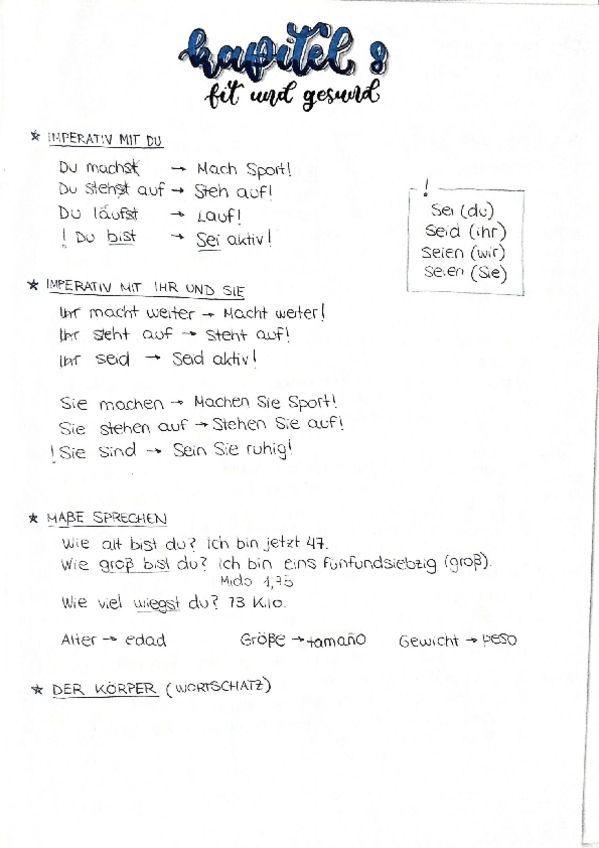 kapitel 8
fit und gesund
★ IMPERATIV MIT DU
Du machst → Mach Sport!
Du stehst auf → Steh auf!
Du läufst → Lauf!
! Du bist → Sei aktiv!
!
Sei (du)
Seid (ihr)
Seien (wir)
Seien (Sie)
★ IMPERATIV MIT IHR UND SIE
Ihr macht weiter → Macht weiter!
Ihr steht auf → Steht auf!
Ihr seid → Seid aktiv!
Sie machen → Machen Sie Sport!
Sie stehen auf → Stehen Sie auf!
! Sie sind → Sein Sie ruhig!
★ MAßE SPRECHEN
Wie alt bist du? Ich bin jetzt 47.
Wie groß bist du? Ich bin eins fünfundsiebzig (groß).
Mido 1,75
Wie viel wiegst du? 73 Kilo.
Alter → edad Größe → tamaño Gewicht → peso
★ DER KÖRPER (WORTSCHATZ)